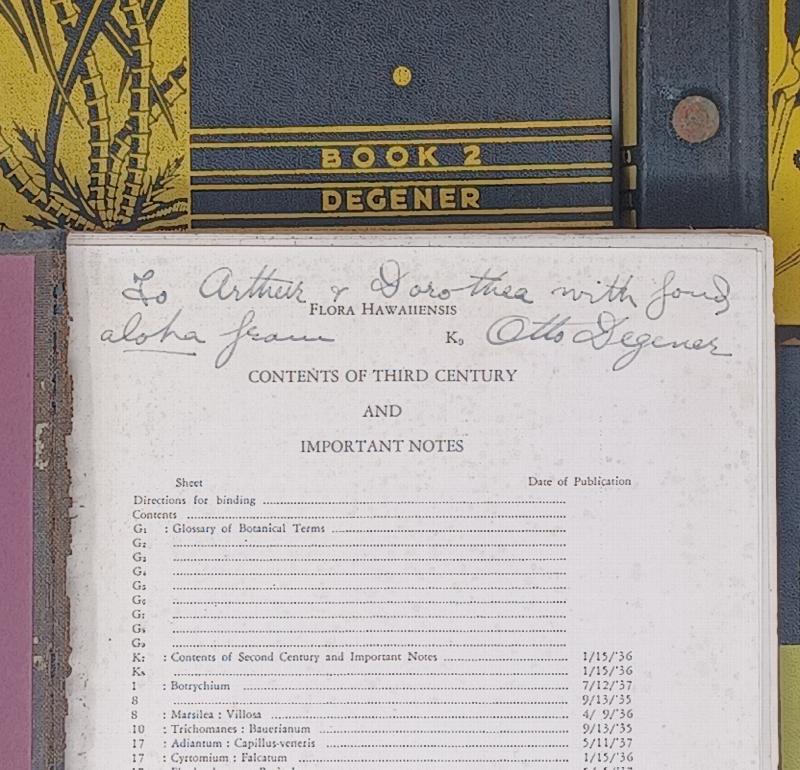 BOOK 2
DEGENER
To Arthur & Dorothea with fond
FLORA HAWAIIENSIS
aloha from K9 Otto Degener
CONTENTS OF THIRD CENTURY
AND
IMPORTANT NOTES
Sheet Date of Publication
Directions for binding
Contents
G1 : Glossary of Botanical Terms
G2
G3
G4
G5
G6
G7
G8
G9
K7 : Contents of Second Century and Important Notes 1/15/'36
K8 1/15/'36
1 : Botrychium 7/12/'37
8 9/13/'35
8 : Marsilea : Villosa 4/ 9/'36
10 : Trichomanes : Bauerianum 9/13/'35
17 : Adiantum : Capillus-veneris 5/11/'37
17 : Cyrtomium : Falcatum 1/15/'36